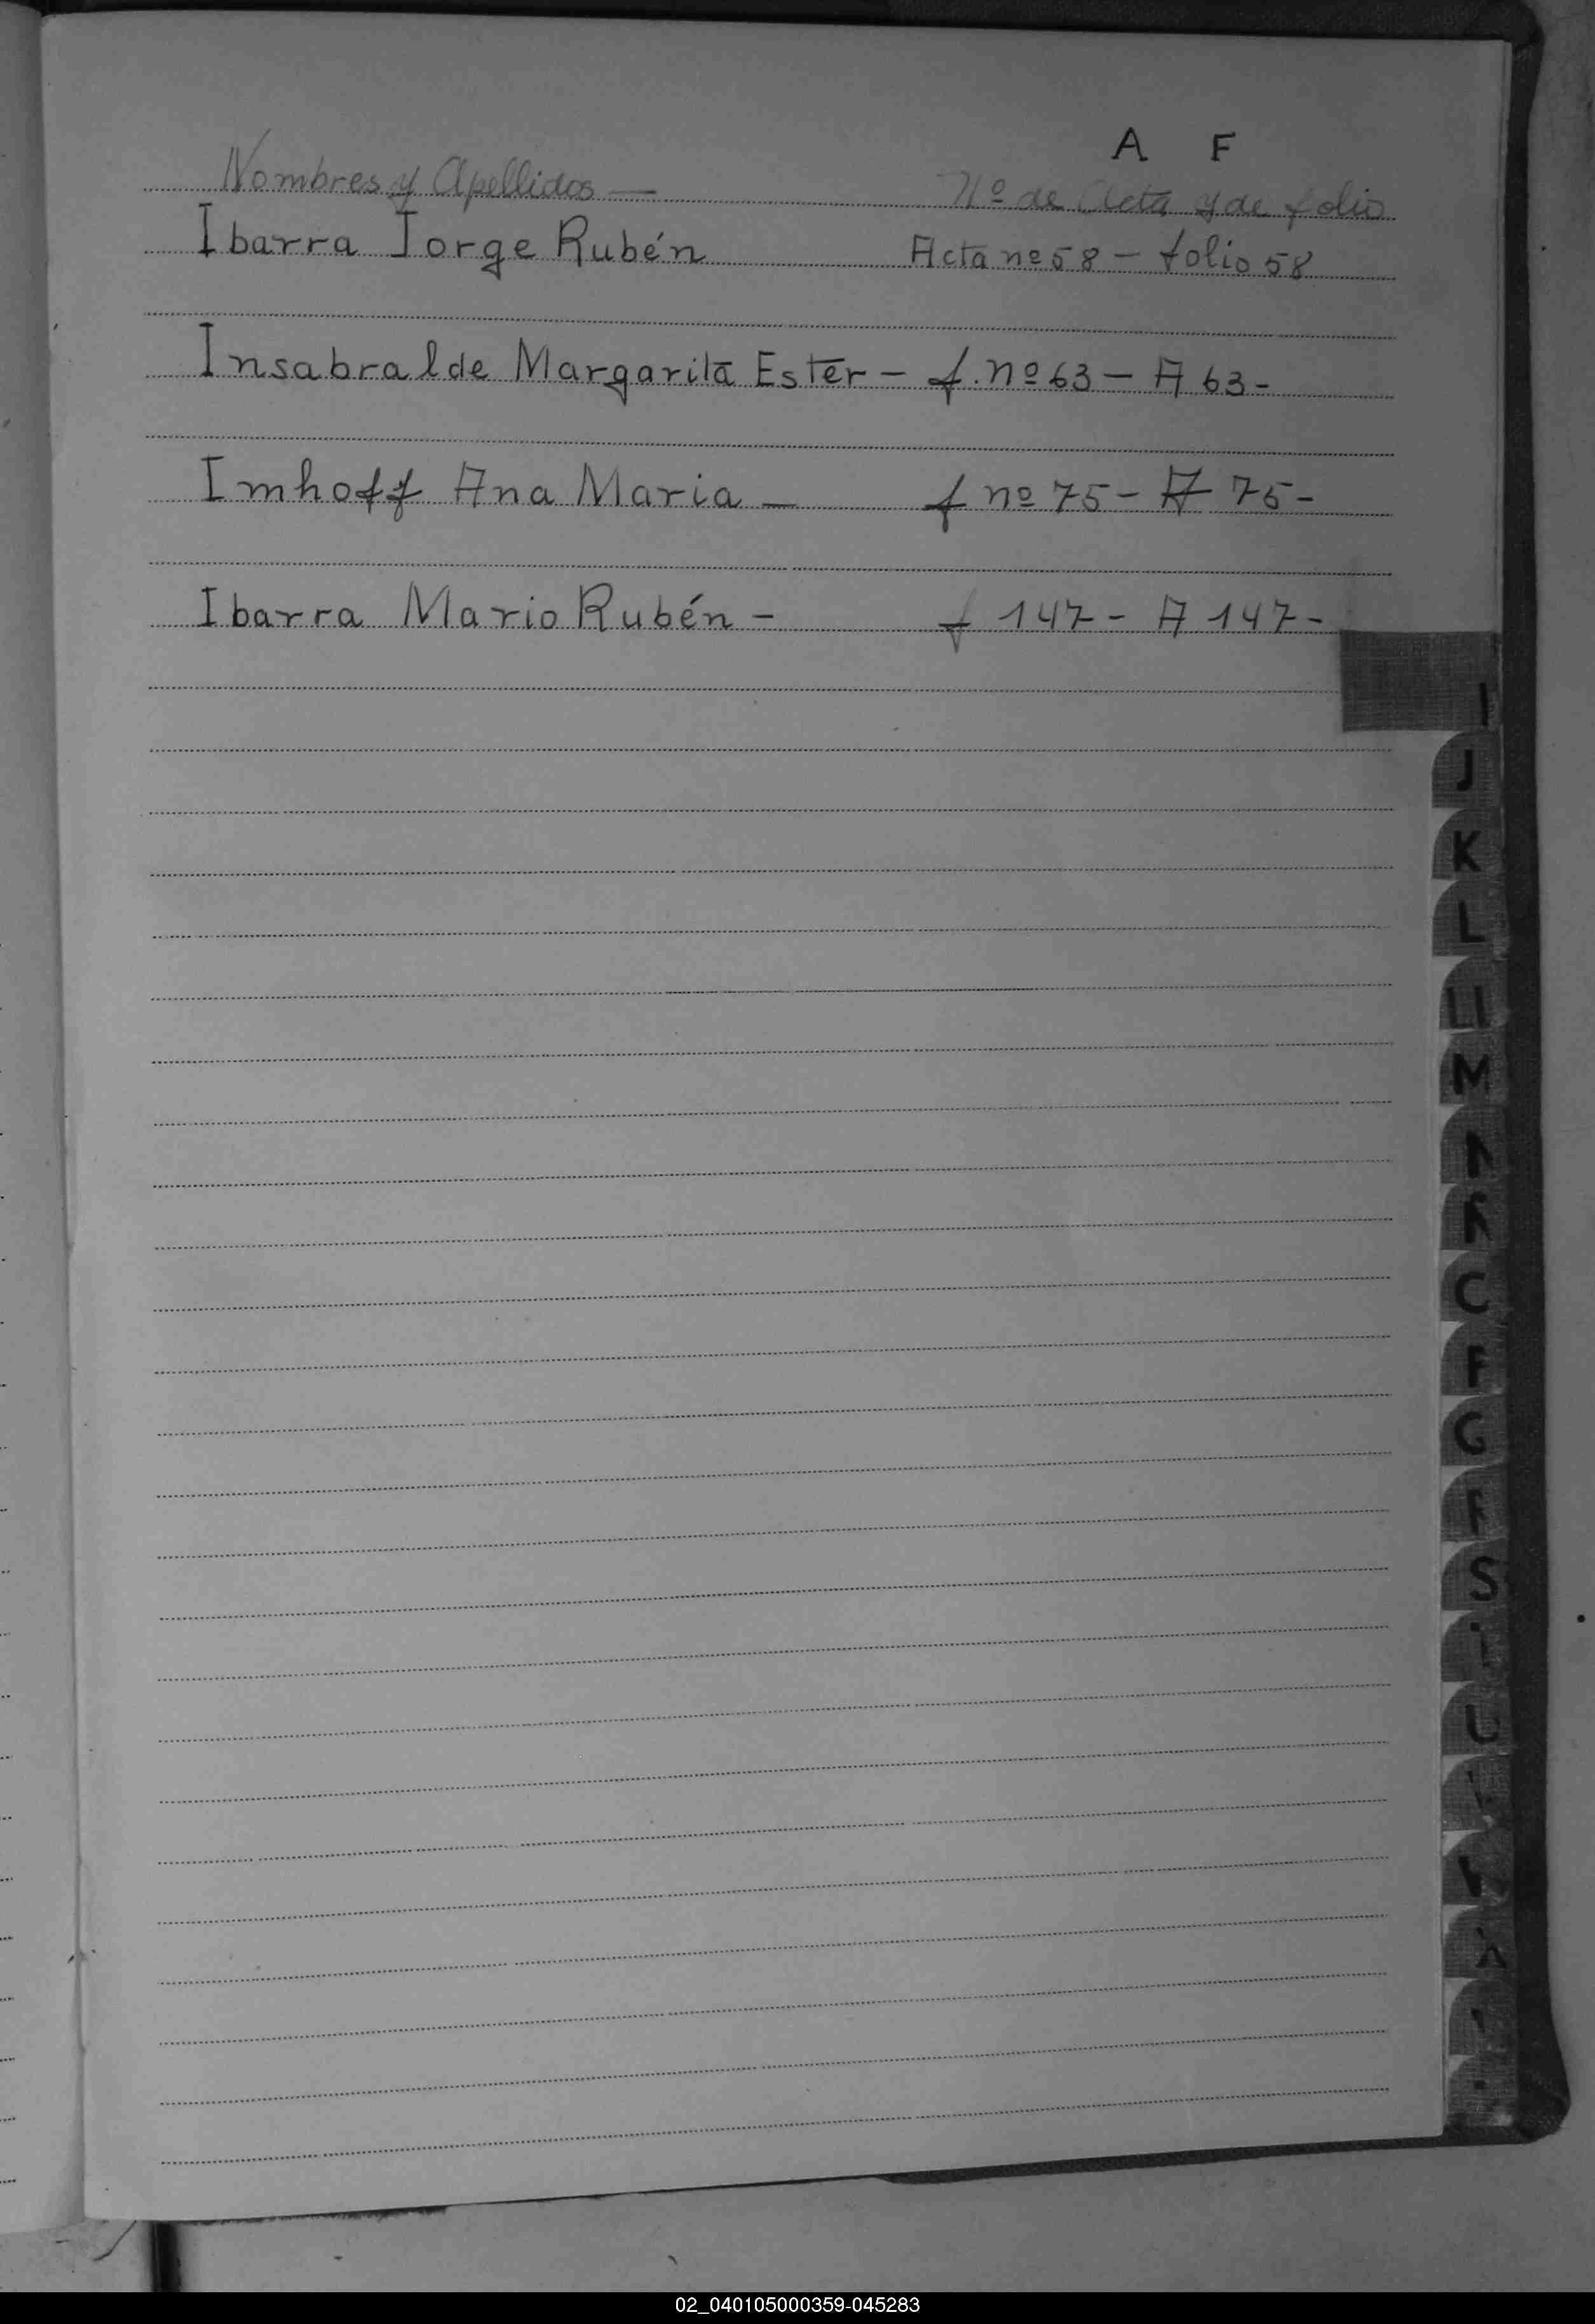 A F
Nombres y Apellidos — Nº de Acta y de folio
Ibarra Jorge Rubén Acta nº 58 – folio 58
Insabralde Margarita Ester – f. nº 63 – A 63 –
Imhoff Ana Maria — f nº 75 – A 75 –
Ibarra Mario Rubén – f 147 – A 147 –
I
J
K
L
Ll
M
S
02_040105000359-045283